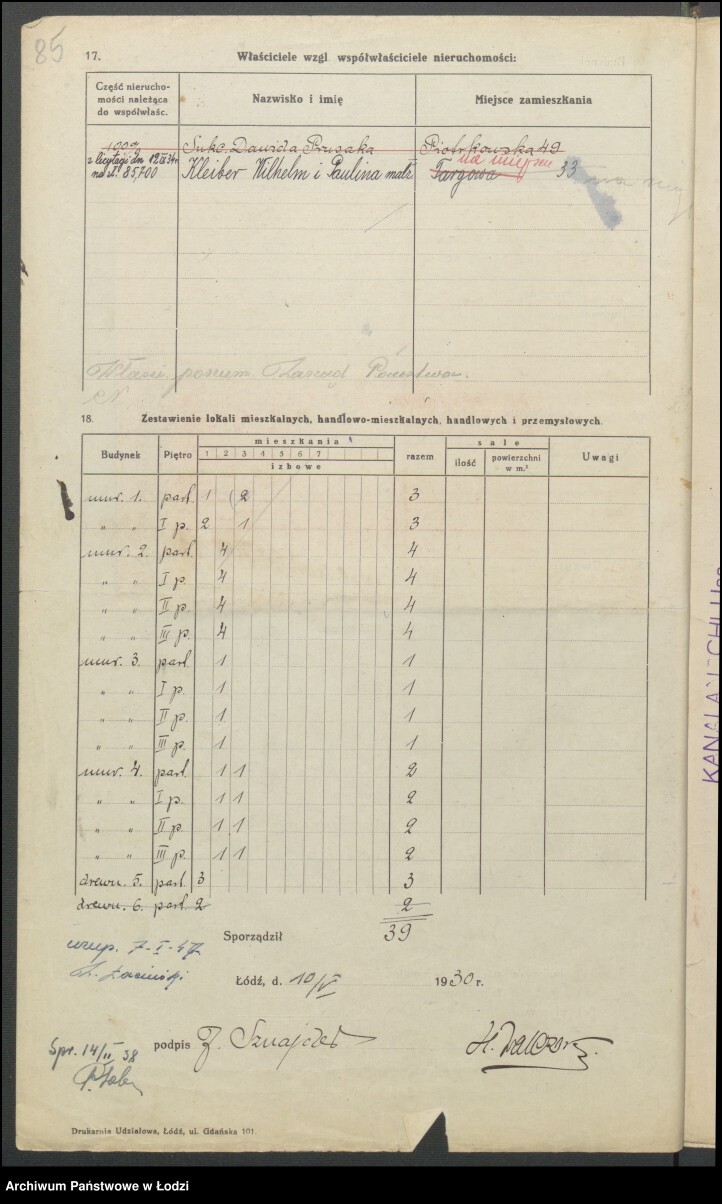 85
17. Właściciele wzgl. współwłaściciele nieruchomości:
Część nierucho-
mości należąca
do współwłaśc.
Nazwisko i imię
Miejsce zamieszkania
100% Sukc. Dawida Prusaka Piotrkowska 49
z licytacji dn 12 IX 34 r. na miejscu
na zł. 85,700 Kleiber Wilhelm i Paulina małż. Targowa 33
Zarząd Państwow.
18. Zestawienie lokali mieszkalnych, handlowo-mieszkalnych, handlowych i przemysłowych.
Budynek Piętro mieszkania razem sale Uwagi
1 2 3 4 5 6 7
izbowe
ilość powierzchni w m.²
mur. 1. part. 1 2 3
„ „ I p. 2 1 3
mur. 2. part. 4 4
„ „ I p. 4 4
„ „ II p. 4 4
„ „ III p. 4 4
mur. 3. part. 1 1
„ „ I p. 1 1
„ „ II p. 1 1
„ „ III p. 1 1
mur. 4. part. 1 1 2
„ „ I p. 1 1 2
„ „ II p. 1 1 2
„ „ III p. 1 1 2
drewn. 5. part. 3 3
drewn. 6. part. 2 2
39
Sporządził
uzup. 7-I-47
Łódź, d. 10/V 1930 r.
Spr. 14/II 38
podpis F. Sznajder
Drukarnia Udziałowa, Łódź, ul. Gdańska 101.
Archiwum Państwowe w Łodzi